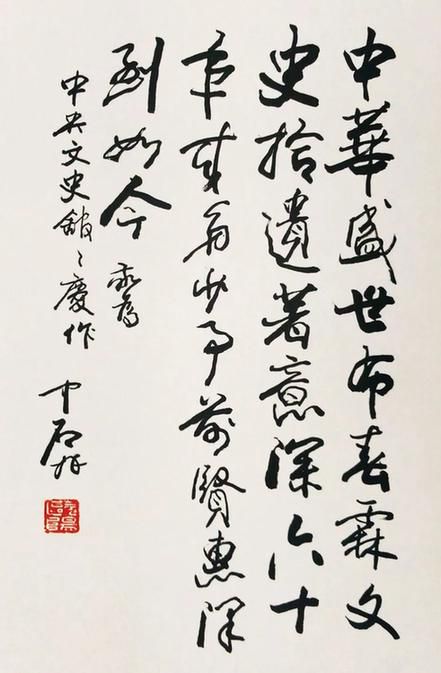 中華盛世布春霖文
史拾遺著意深六十
年来多少事前賢惠澤
到如今
中央文史館〻慶作
中石